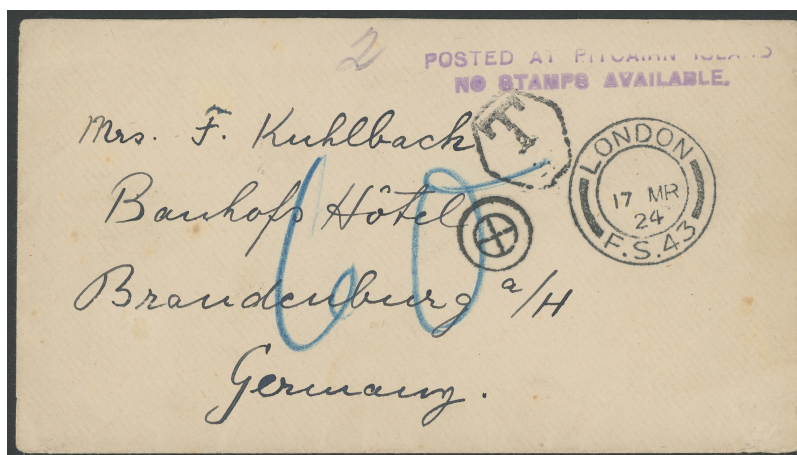 2
POSTED AT PITCAIRN ISLAND
NO STAMPS AVAILABLE.
T
LONDON
17 MR
24
F.S.43
Mrs. F. Kuhlback
Banhofs Hôtel
Brandenburg a/H
Germany.
60